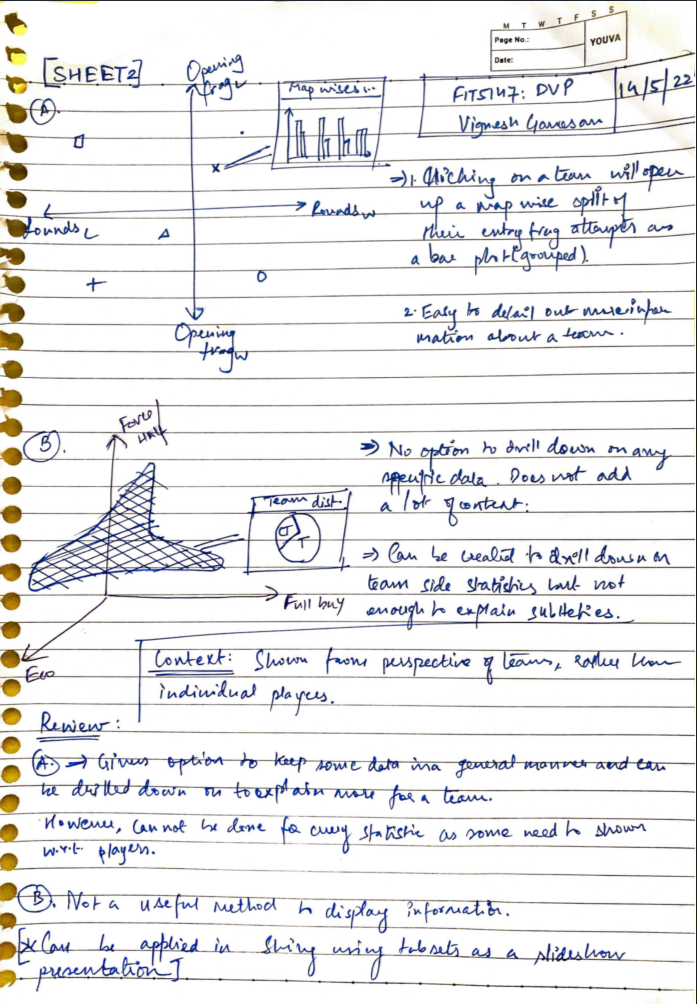 M T W T F S S
Page No.:
YOUVA
Date:
[SHEET2]
Opening
frag w
Map wise s...
FIT5147: DVP
Vignesh
14/5/22
A.
Rounds L
Rounds w
Opening
frag w
⇒ 1. Clicking on a team will open
up a map wise split of
their entry frag attempts as
a bar plot (grouped).
2. Easy to detail out more infor
mation about a team.
B.
Force/
Half
Team dist.
CT
T
Full buy
Eco
⇒ No option to drill down on any
specific data. Does not add
a lot of content.
⇒ Can be created to drill down on
team side statistics but not
enough to explain subtleties.
Context: Shown from perspective of teams, rather than
individual players.
Review:
A. → Gives option to keep some data in a general manner and can
be drilled down on to explain more for a team.
However, cannot be done for every statistic as some need to shown
w.r.t. players.
B. Not a useful method to display information.
[* Can be applied in using tabsets as a slideshow
presentation]